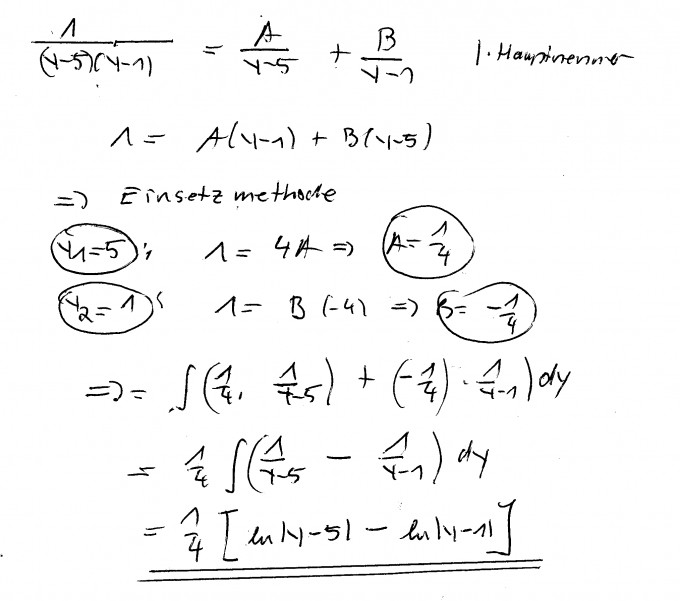 1/((y-5)(y-1)) = A/(y-5) + B/(y-1) | · Hauptnenner
1 = A(y-1) + B(y-5)
=> Einsetzmethode
y1=5 : 1 = 4A => A = 1/4
y2=1 : 1 = B(-4) => B = -1/4
=> = ∫(1/4 · 1/(y-5)) + (-1/4) · 1/(y-1)) dy
= 1/4 ∫(1/(y-5) - 1/(y-1)) dy
= 1/4 [ln|y-5| - ln|y-1|]